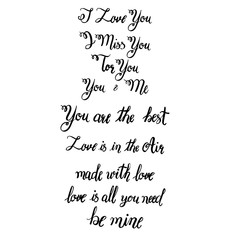 I Love You
I Miss You
For You
You & Me
You are the best
Love is in the Air
made with love
love is all you need
be mine